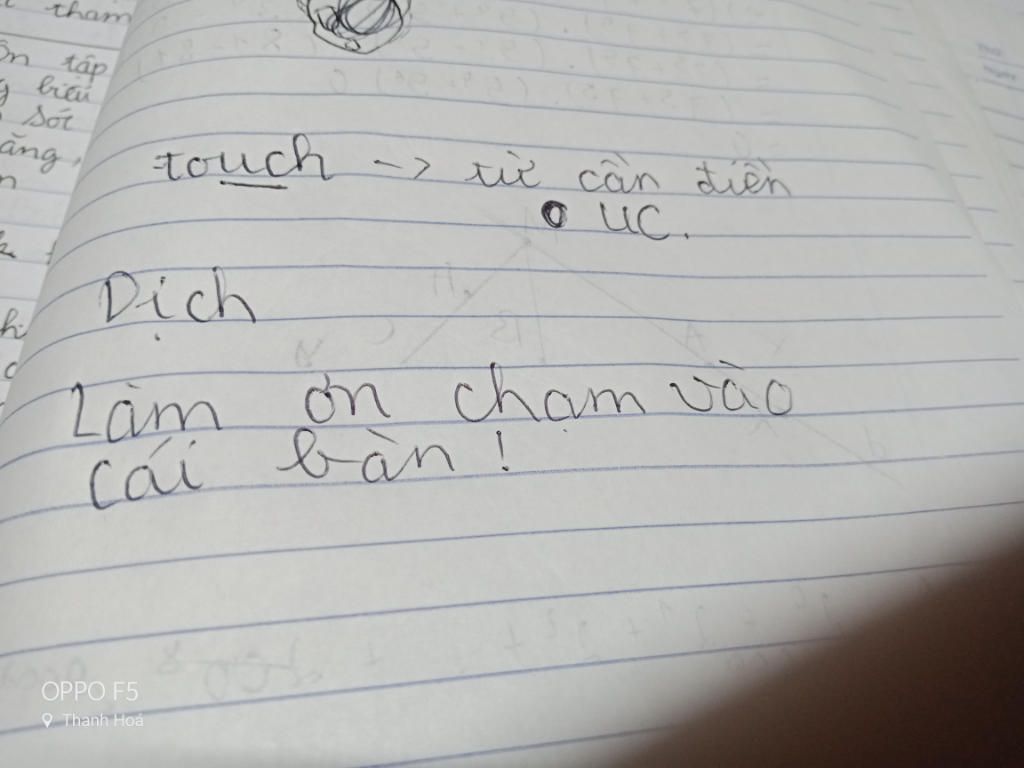 tham
ôn tập
biểu
sót
touch -> từ cần điền
UC.
Dịch
Làm ơn chạm vào
cái bàn!
OPPO F5
Thanh Hoá